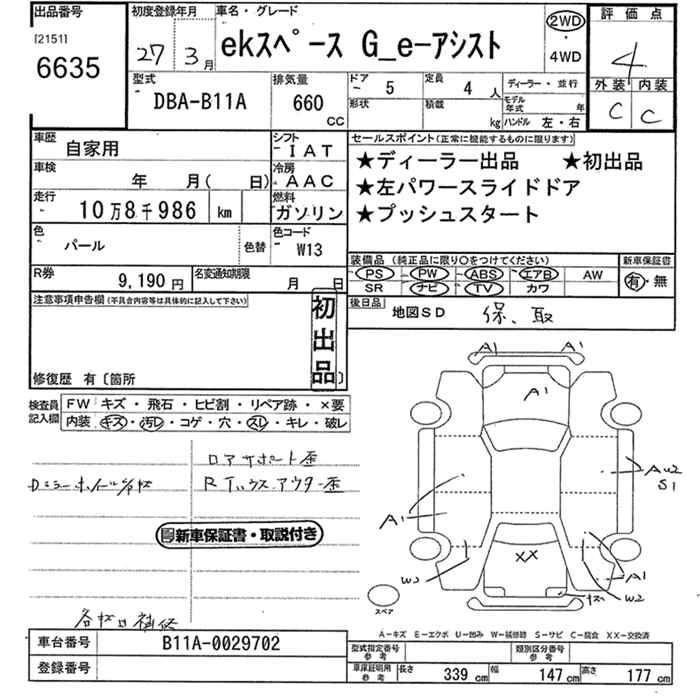 出品番号
[2151]
6635
初度登録年月
27 3月
車名・グレード
ekスペース G_e-アシスト
2WD
・
4WD
評価点
4
外装 内装
C C
型式
DBA-B11A
排気量
660
CC
ドア
5
形状
定員
4 人
積載
kg
ディーラー・並行
モデル年式 年
ハンドル 左・右
車歴
自家用
シフト
IAT
車検
年 月( 日)
冷房
AAC
走行
10万8千986 km
燃料
ガソリン
色
パール
色替
色コード
W13
R券
9,190円
名変通知期限
月 日
セールスポイント(正常に機能するものに限ります)
★ディーラー出品 ★初出品
★左パワースライドドア
★プッシュスタート
装備品 (純正品に限り○をつけてください)
PS PW ABS エアB AW
SR ナビ TV カワ
新車保証書
有・無
後日品
地図SD 保、取
注意事項申告欄(不具合内容等は具体的に記入して下さい)
初出品
修復歴 有〔箇所 〕
検査員記入欄
FW キズ・飛石・ヒビ割・リペア跡・×要
内装 キズ・汚レ・コゲ・穴・スレ・キレ・破レ
ロアサポート歪
Rインハウスアウター歪
新車保証書・取説付き
A1 A1
A1
A1
AU2
S1
XX
W2
A1
W2
スペア
A-キズ E-エクボ U-凹み W-補修跡 S-サビ C-腐食 XX-交換済
車台番号
B11A-0029702
登録番号
型式指定番号
参考
類別区分番号
参考
車庫証明用
参考
長さ 339 cm 幅 147 cm 高さ 177 cm